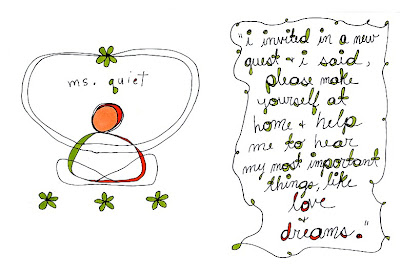 ms. quiet
"i invited in a new
guest + i said,
please make
yourself at
home + help
me to hear
my most important
things, like
love
+
dreams."